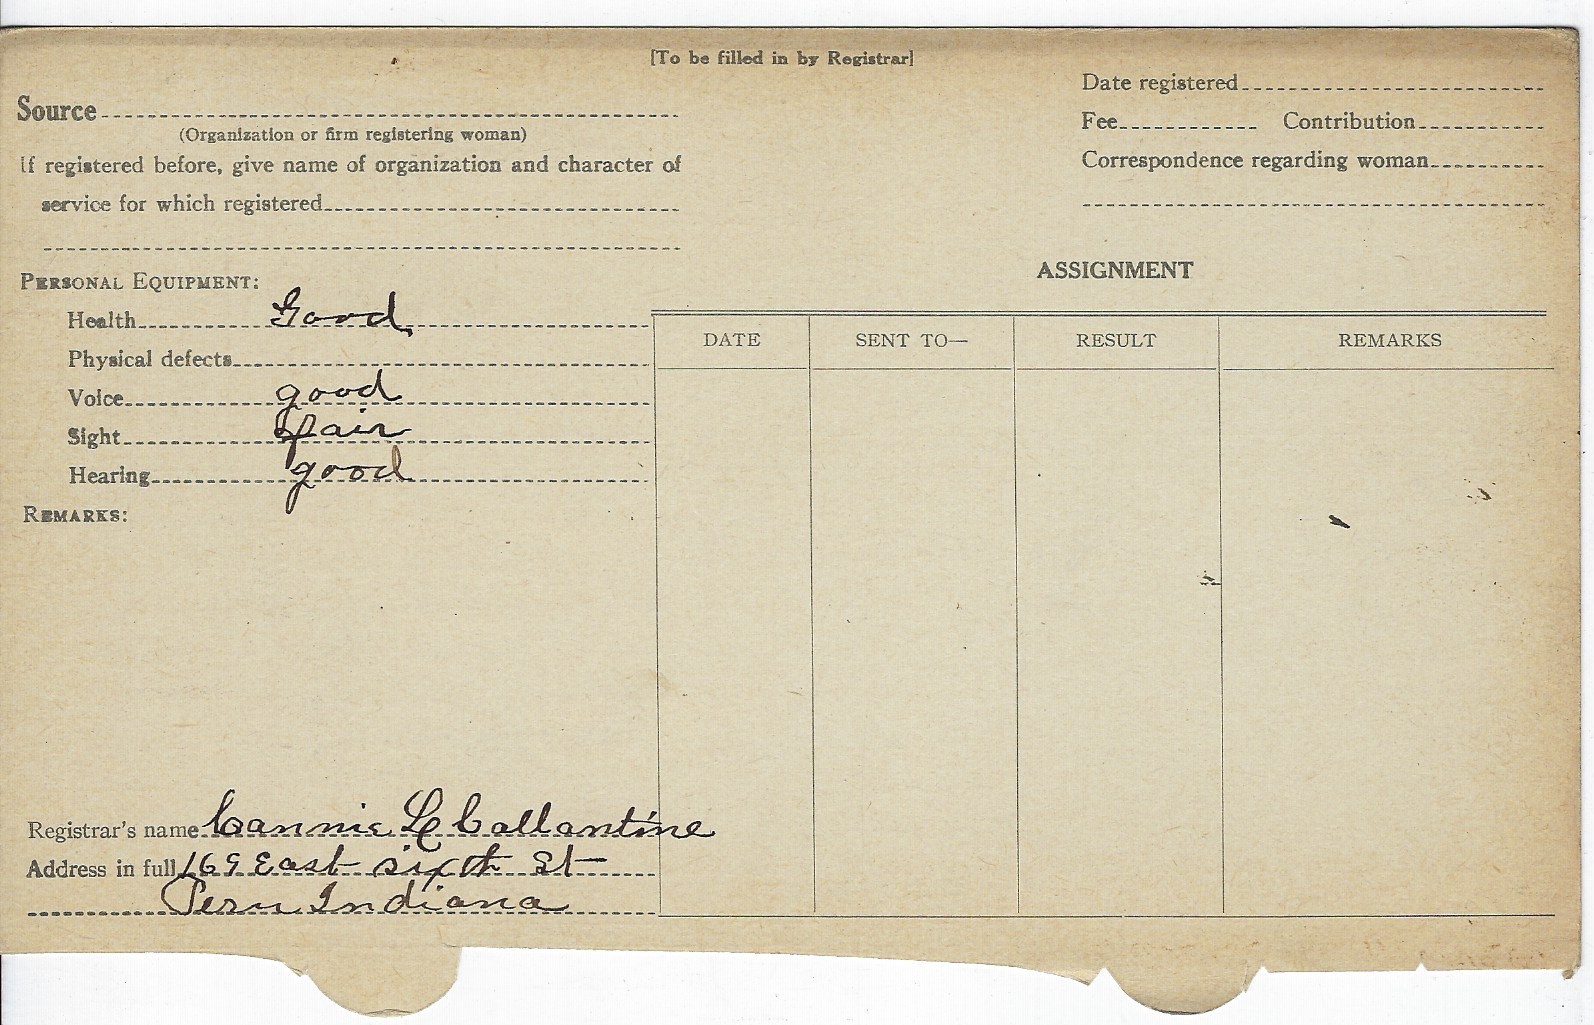 [To be filled in by Registrar]
Source
(Organization or firm registering woman)
If registered before, give name of organization and character of
service for which registered
Date registered
Fee Contribution
Correspondence regarding woman
PERSONAL EQUIPMENT:
Health Good
Physical defects
Voice good
Sight fair
Hearing good
REMARKS:
ASSIGNMENT
DATE SENT TO— RESULT REMARKS
Registrar's name Cannie L Callantine
Address in full 169 East sixth St
Peru Indiana